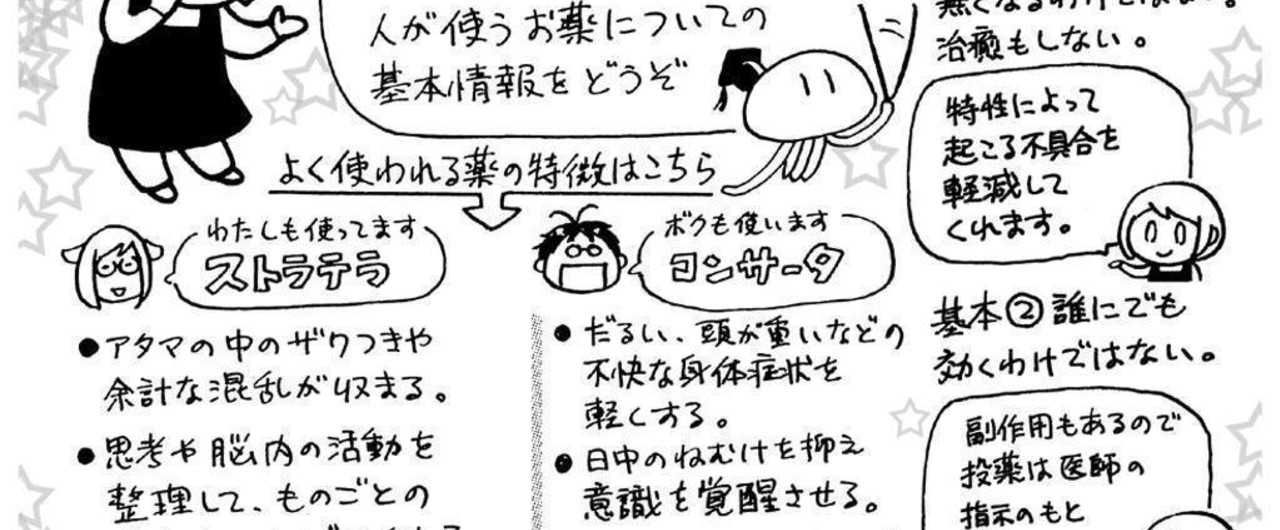 人が使うお薬についての
基本情報をどうぞ
よく使われる薬の特徴はこちら
わたしも使ってます
ストラテラ
●アタマの中のザワつきや
余計な混乱が収まる。
●思考や脳内の活動を
整理して、ものごとの
ボクも使います
コンサータ
●だるい、頭が重いなどの
不快な身体症状を
軽くする。
●日中のねむけを抑え
意識を覚醒させる。
無くなるわけではない。
治癒もしない。
特性によって
起こる不具合を
軽減して
くれます。
基本②誰にでも
効くわけではない。
副作用もあるので
投薬は医師の
指示のもと